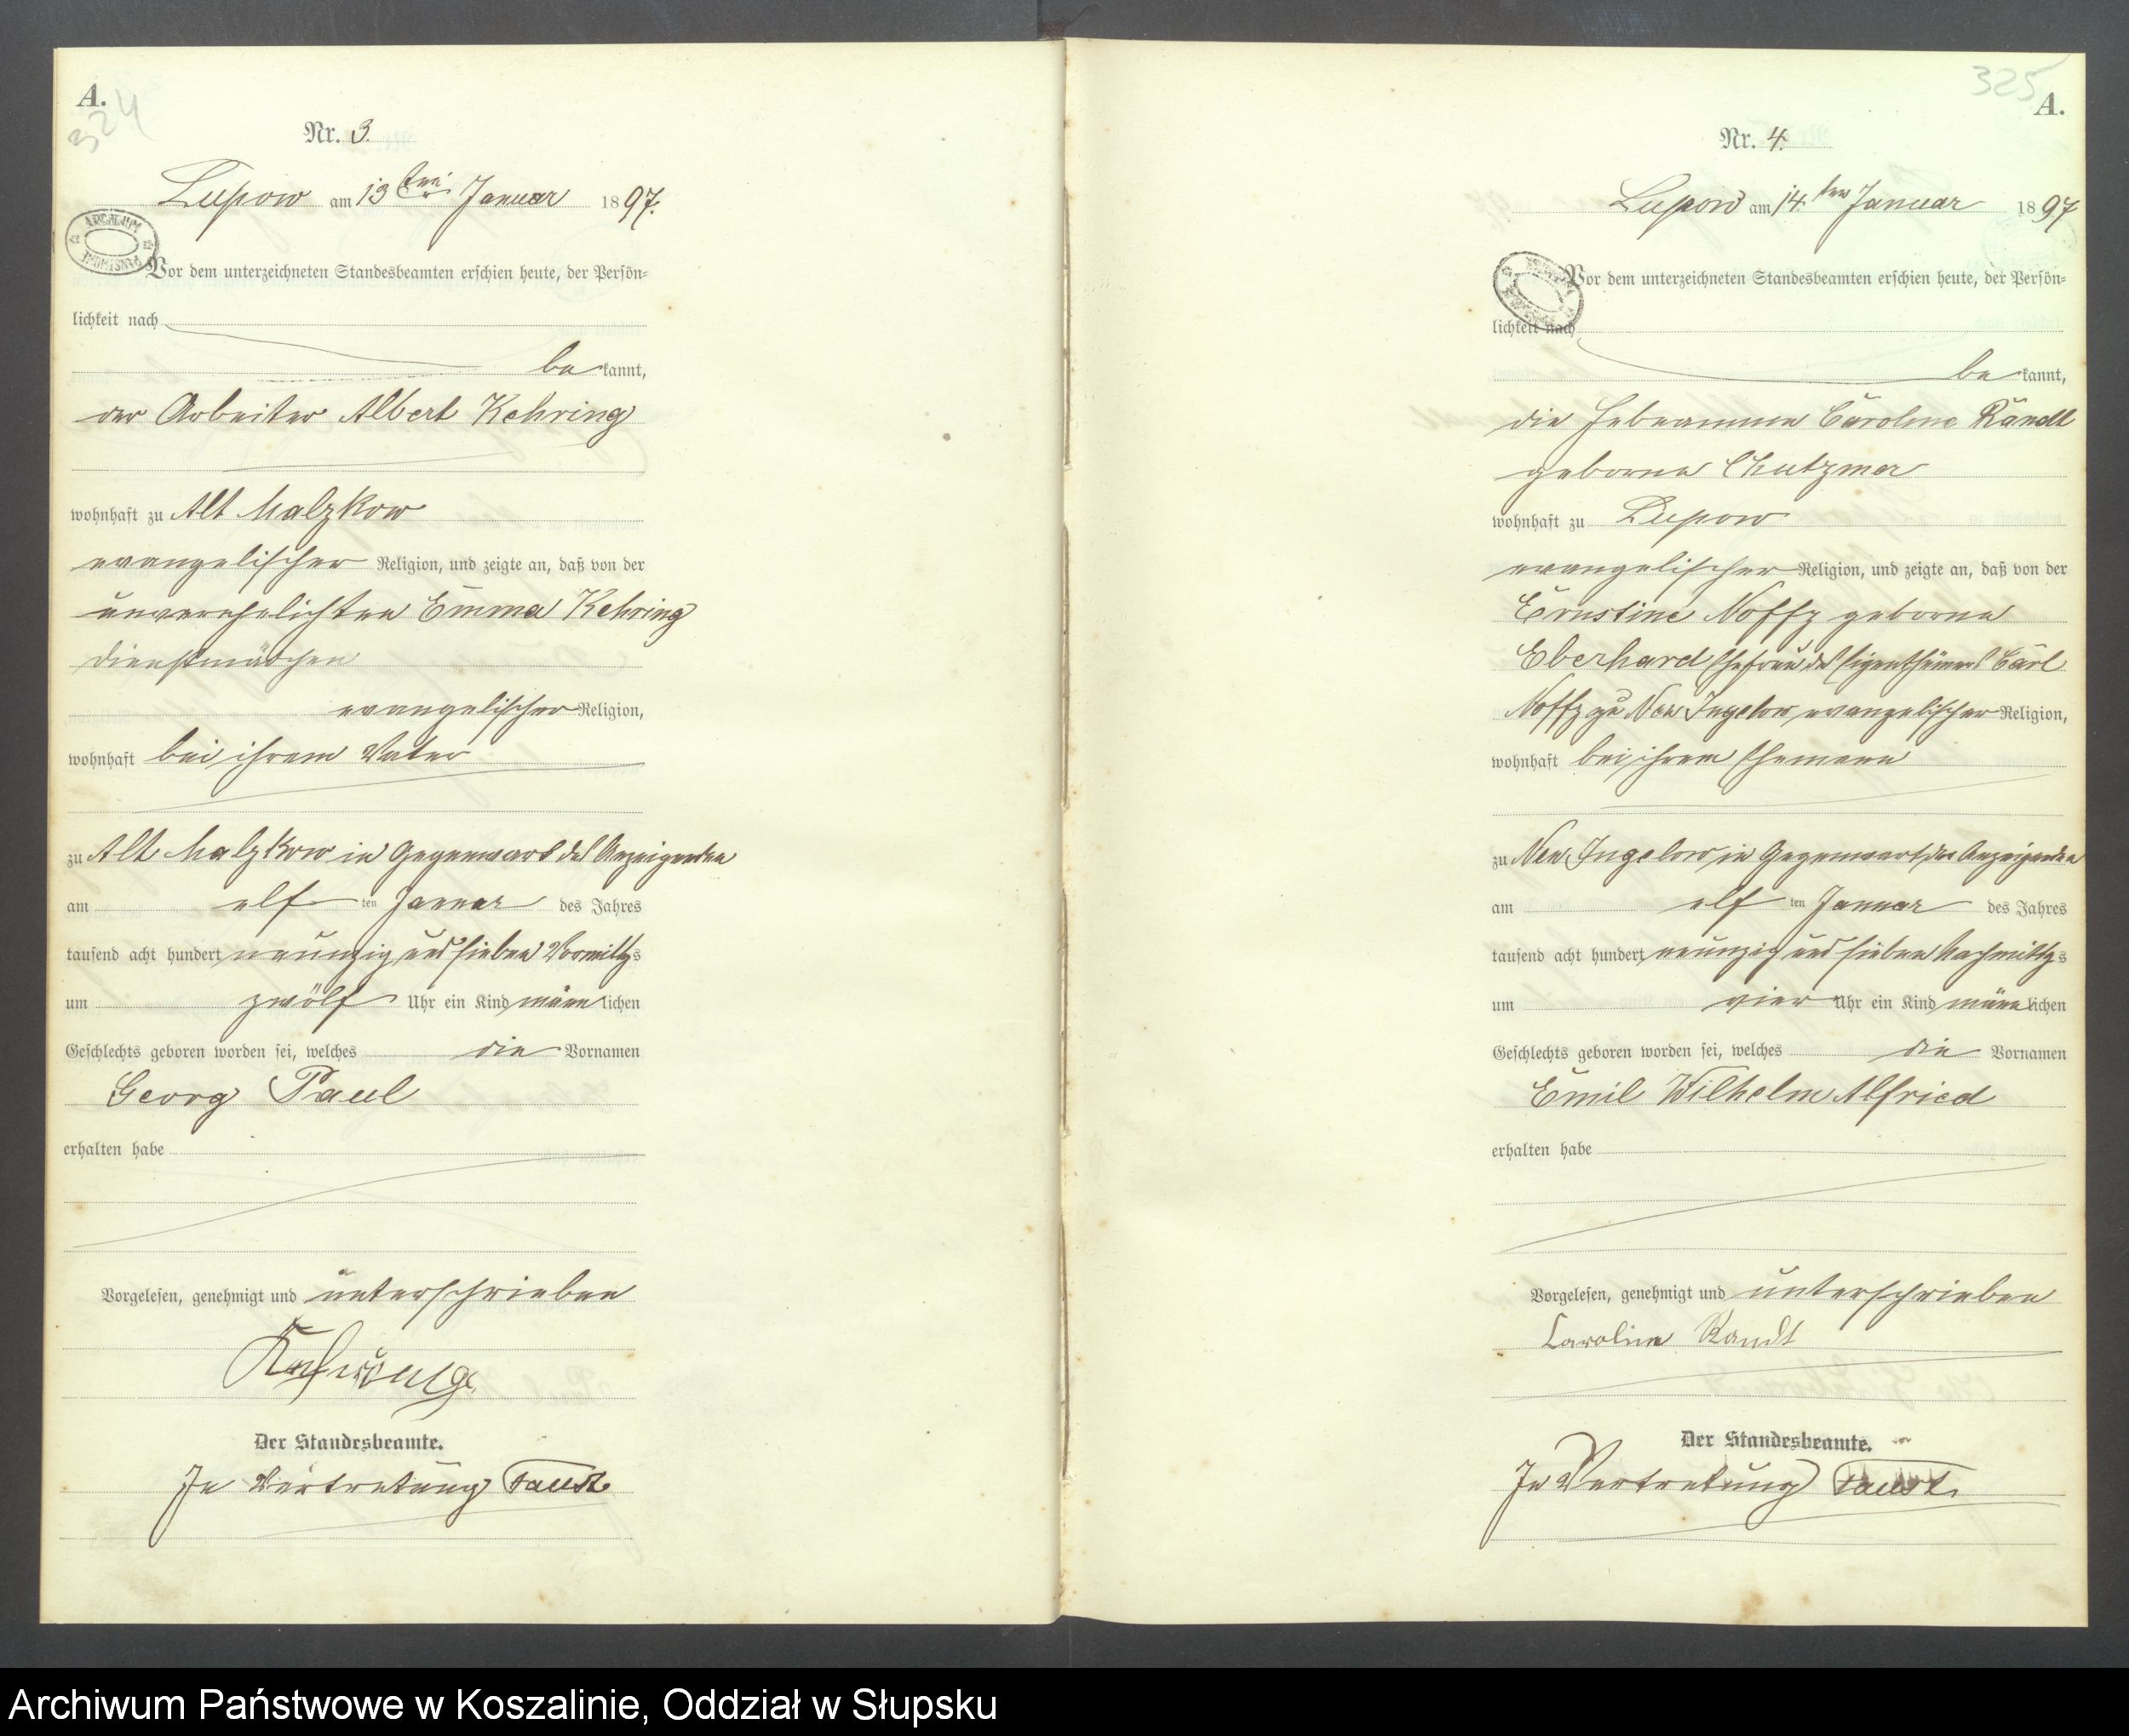 A.
324
Nr. 3.
Lupow am 13ten Januar 1897.
Vor dem unterzeichneten Standesbeamten erschien heute, der Persön=
lichkeit nach
be kannt,
der Arbeiter Albert Kehring
wohnhaft zu Alt Malzkow
evangelischer Religion, und zeigte an, daß von der
unverehelichten Emma Kehring
Dienstmädchen
evangelischer Religion,
wohnhaft bei ihrem Vater
zu Alt Malzkow in Gegenwart des Anzeigenden
am elf ten Januar des Jahres
tausend acht hundert neunzig und sieben Vormittgs
um zwölf Uhr ein Kind männ lichen
Geschlechts geboren worden sei, welches die Vornamen
Georg Paul
erhalten habe
Vorgelesen, genehmigt und unterschrieben
Der Standesbeamte.
In Vertretung Faust
325
A.
Nr. 4.
Lupow am 14ten Januar 1897
Vor dem unterzeichneten Standesbeamten erschien heute, der Persön=
lichkeit nach
be kannt,
die Hebeamme Caroline Randt
geborne
wohnhaft zu Lupow
evangelischer Religion, und zeigte an, daß von der
Ernstine Noffz geborne
Eberhard Ehefrau des Eigenthümers Carl
Noffz zu Neu Jugelow, evangelischer Religion,
wohnhaft bei ihrem Ehemann
zu Neu Jugelow, in Gegenwart der Anzeigenden
am elf ten Januar des Jahres
tausend acht hundert neunzig und sieben Nachmittgs
um vier Uhr ein Kind männ lichen
Geschlechts geboren worden sei, welches die Vornamen
Emil Wilhelm Alfried
erhalten habe
Vorgelesen, genehmigt und unterschrieben
Caroline Randt
Der Standesbeamte.
In Vertretung Faust
Archiwum Państwowe w Koszalinie, Oddział w Słupsku